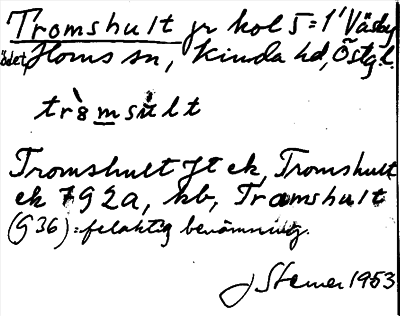 Tromshult fr kol 5=1' Väsby
ödet, Horns sn, Kinda hd, Östg.l.
trò̀msùlt
Tromshult Jt ek, Tromshult
ek 792a, kb, Tramshult
(G36) = felaktig benämning.
J Stemer 1953